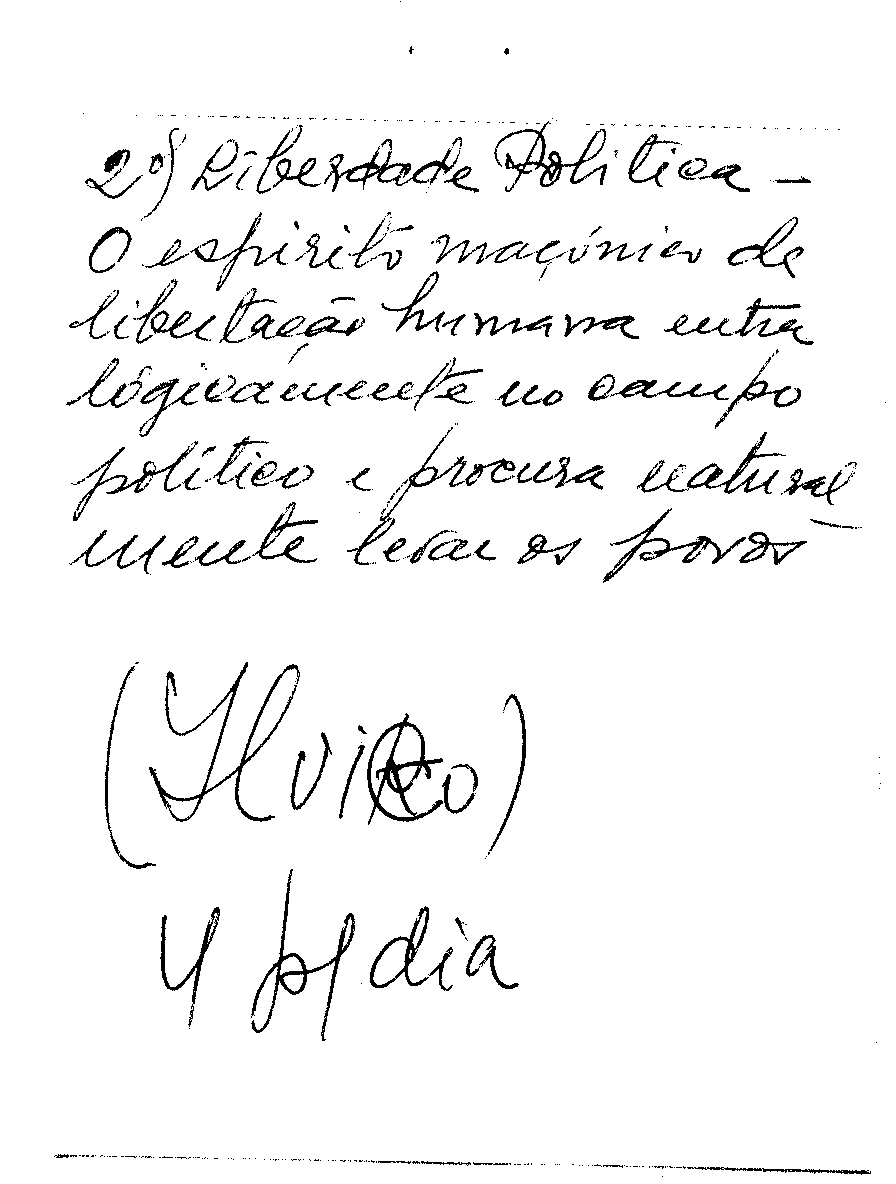 2º) Liberdade Politica -
O espirito maçónico de
libertação humana entra
lógicamente no campo
político e procura natural
mente levar os povos
4 p/ dia